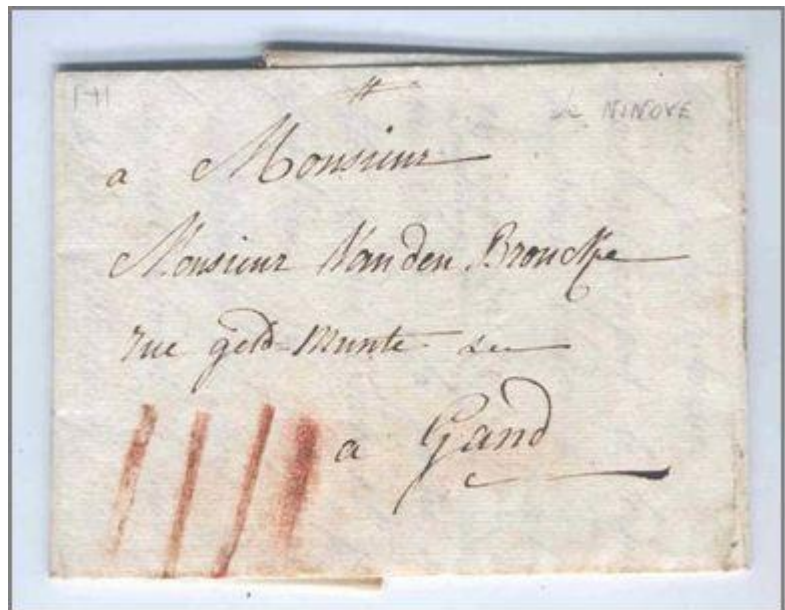 de NINOVE
a Monsieur
Monsieur Vanden Broucke
rue geld-munte
a Gand